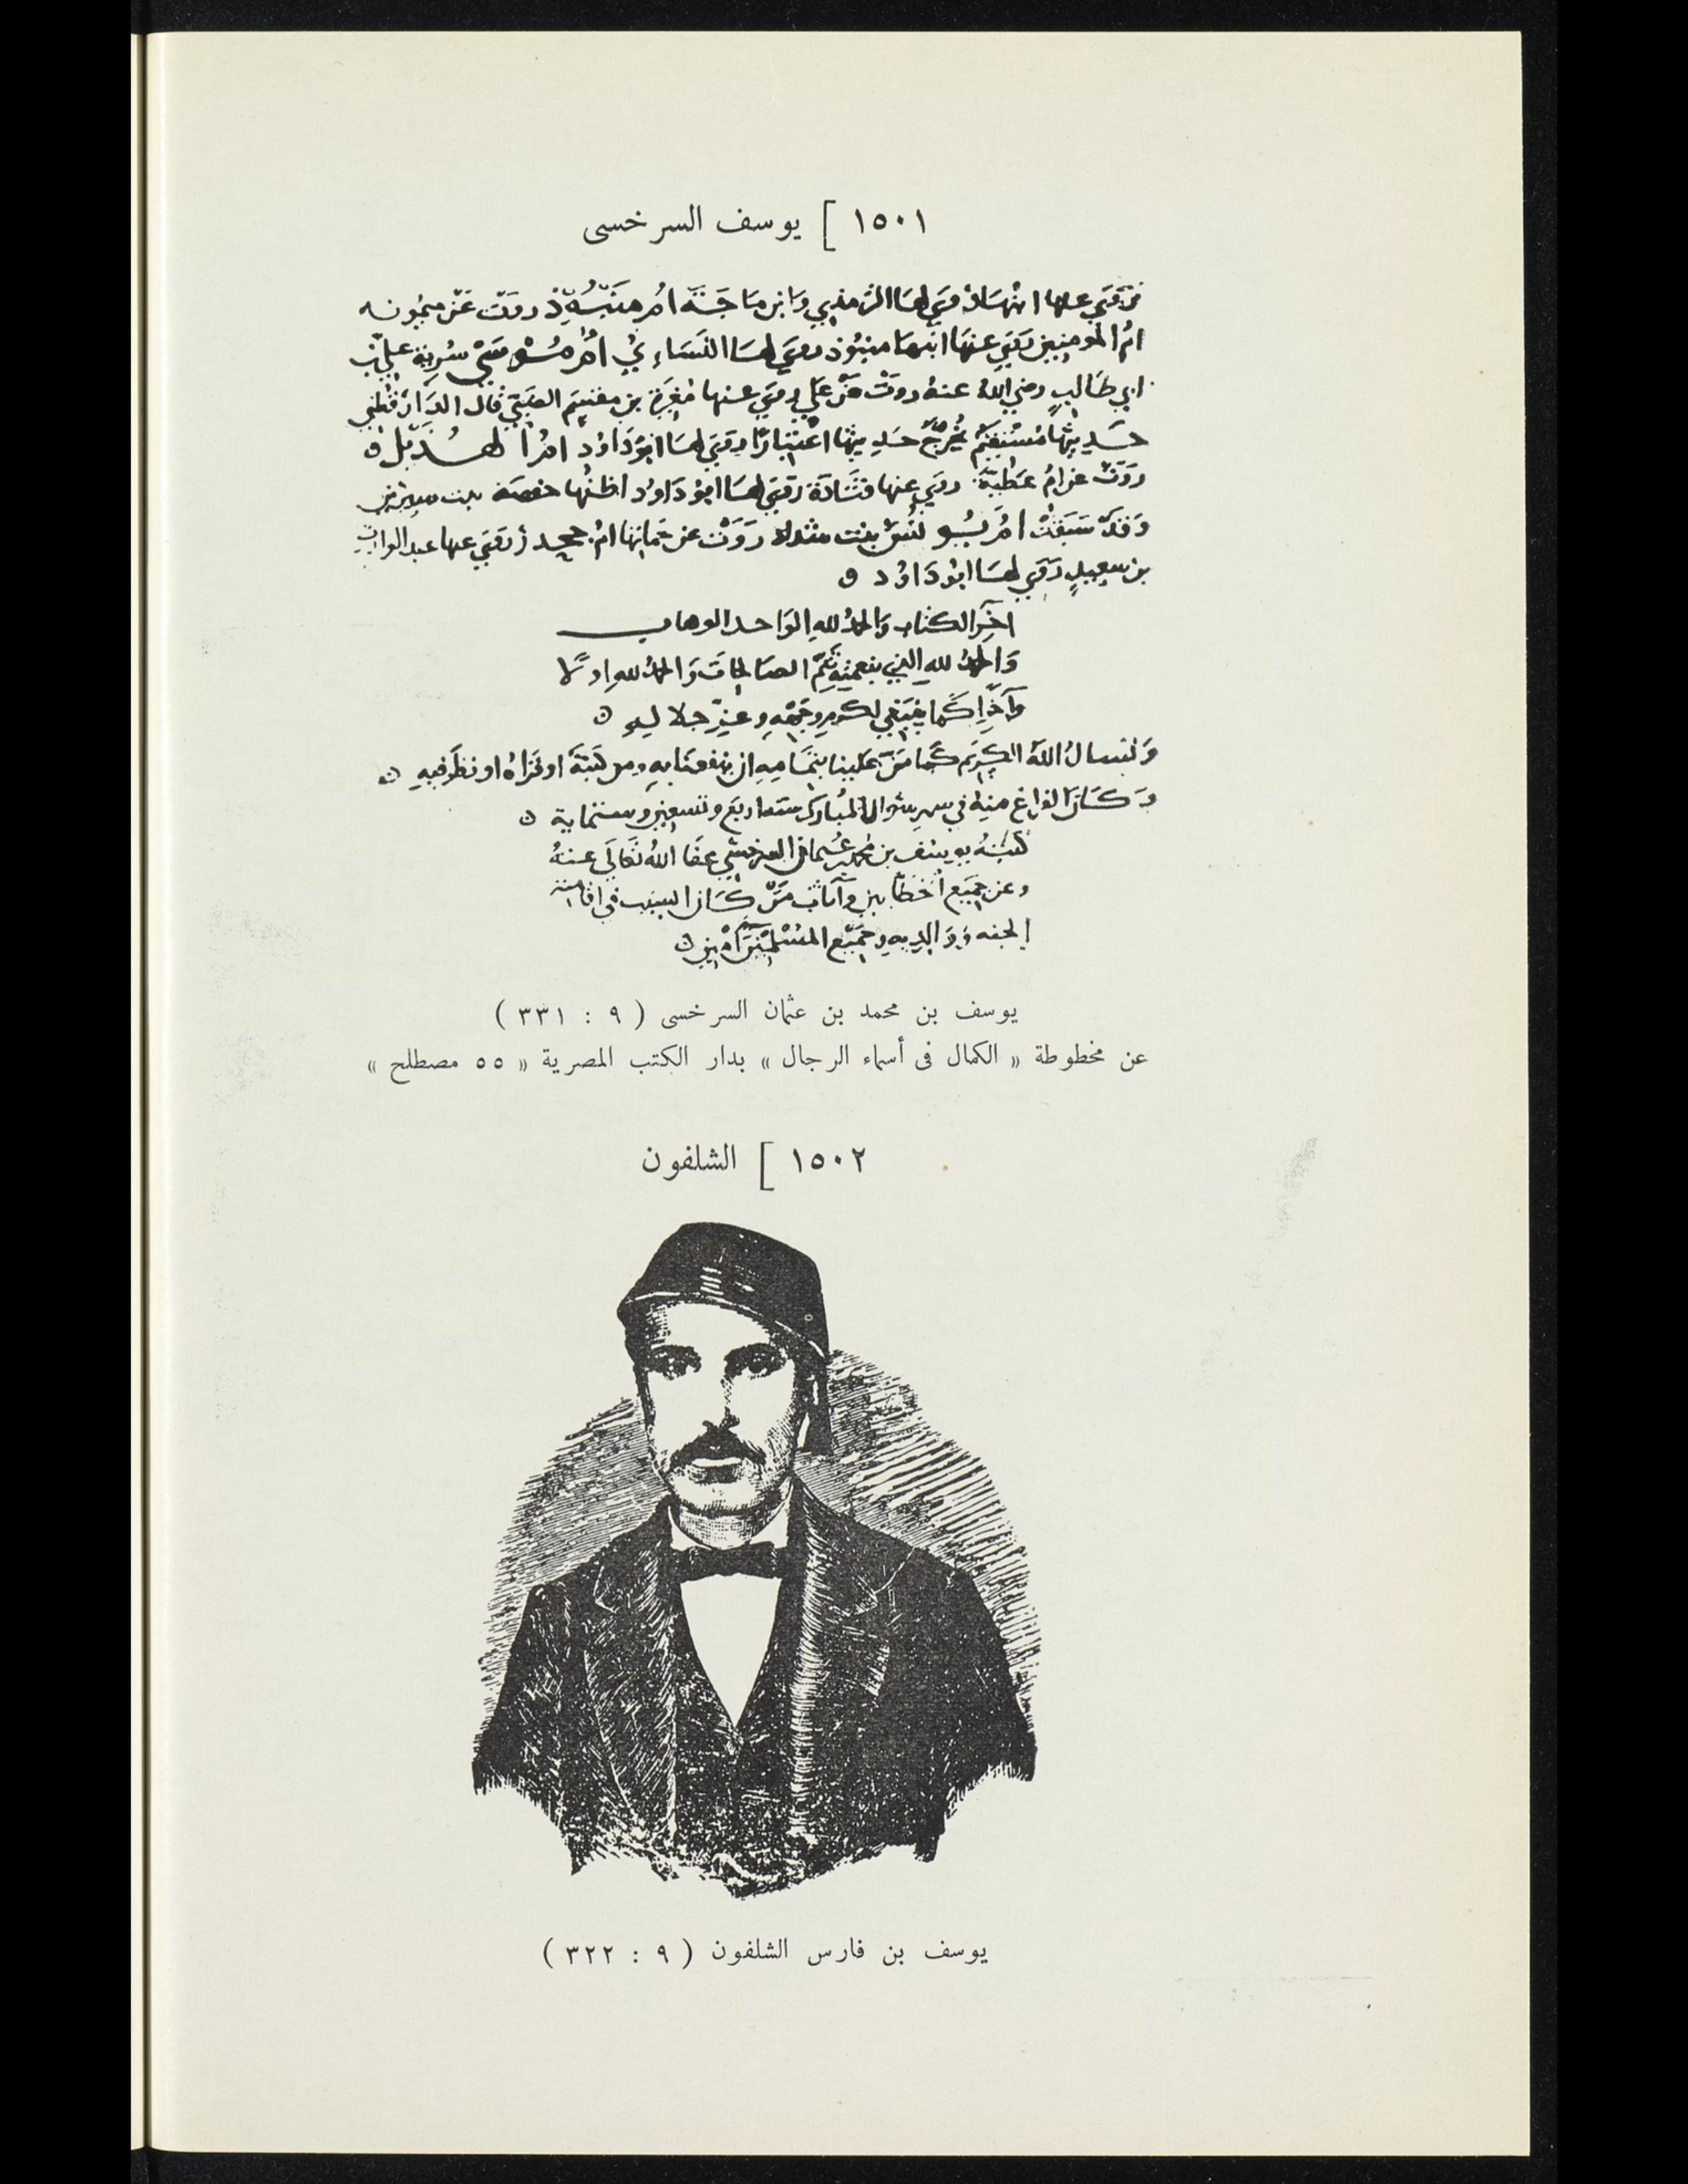 ١٥٠١ [ يوسف السرخسى
روي عنها ابنها روى لها الترمذي وابن ماجة ام منبوذ روت عن ميمونه
ام المومنين روي عنها ابنها منبوذ روي لها النساءي ام موسى سرية علي بن
ابي طالب رضي الله عنه روت عن علي روي عنها مغيرة بن مقسم الضبي قال الدارقطني
حديثها مستقيم يخرج حديثها اعتبارا روي لها ابو داود ام الهذيل
روت عن ام عطية روي عنها قتادة روي لها ابو داود اظنها حفصة بنت سيرين
وقد سبقت ام يونس بنت شداد روت عن حماتها ام جحدر روي عنها عبد الوارث
بن سعيد روي لها ابو داود
اخر الكتاب والحمد لله الواحد الوهاب
والحمد لله الذي بنعمته تتم الصالحات والحمد لله اولا
وآخرا كما ينبغي لكرم وجهه وعز جلاليه
ونسال الله الكريم كما من علينا بتمامه ان ينفعنا به ومن كتبه او قراه او نظر فيه
وكان الفراغ منه في شهر شوال المبارك سنة اربع وتسعين وستماية
كتبه يوسف بن محمد بن عثمان السرخسي عفا الله تعالى عنه
وعن جميع من كان السبب في اقامته
ووالديه وجميع المسلمين آمين
يوسف بن محمد بن عثمان السرخسى ( ٩ : ٣٣١ )
عن مخطوطة « الكمال فى أسماء الرجال » بدار الكتب المصرية « ٥٥ مصطلح »
١٥٠٢ [ الشلفون
يوسف بن فارس الشلفون ( ٩ : ٣٢٢ )